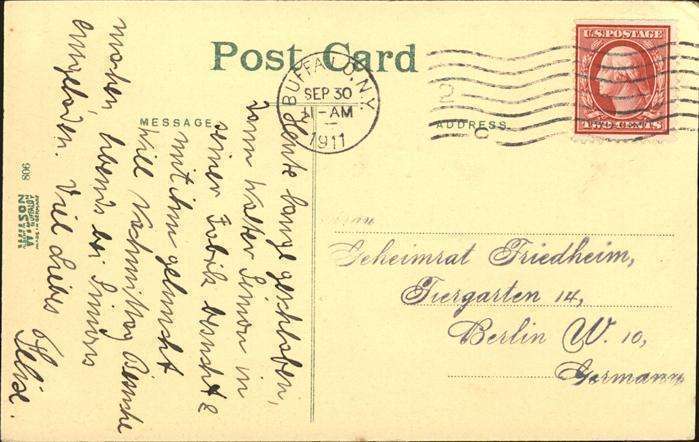 Post Card
BUFFALO, N.Y.
SEP 30
11-AM
1911
U.S. POSTAGE
TWO CENTS
MESSAGE
ADDRESS
2
C
806
WILSON
BUFFALO
Heute lange geschlafen,
dann Walter Simon in
seiner Fabrik besucht &
mit ihm geluncht
Will Nachmittag Besuche
machen, abends bei Simons
eingeladen. Viel Liebes
Felix.
Frau
Geheimrat Friedheim,
Tiergarten 14,
Berlin W. 10,
Germany